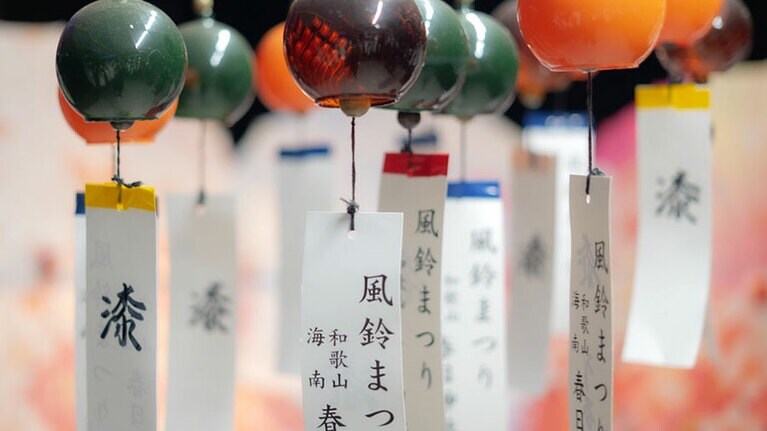 漆
漆
風鈴まつ
和歌山
海南 春
風鈴まつり
風鈴まつり
和歌山
風鈴まつり
和歌山
海南 春日
漆